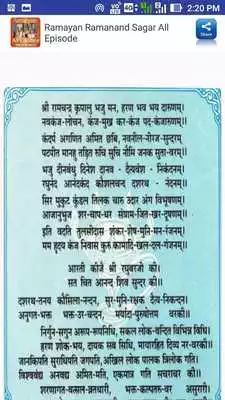 2:20 PM
Ramayan Ramanand Sagar All
Episode
Share
श्री रामचन्द्र कृपालु भजु मन, हरण भव भय दारुणम्।
नवकंज-लोचन, कंज-मुख कर-कंज पद-कंजारुणम्॥
कंदर्प अगणित अमित छबि, नवनील-नीरज-सुन्दरम्
पटपीत मानहु तड़ित रुचि सुचि नौमि जनक सुता-वरम्॥
भजु दीनबंधु दिनेश दानव - दैत्यवंश - निकंदनम्।
रघुनंद आनंदकंद कौशलचन्द दशरथ - नंदनम्॥
सिर मुकुट कुंडल तिलक चारु उदार अंग विभूषणम्।
आजानुभुज शर-चाप-धर संग्राम-जित-खर-दूषणम्॥
इति वदति तुलसीदास शंकर-शेष-मुनि-मन-रंजनम्।
मम हृदय कंज निवास कुरु कामादि-खल-दल-गंजनम्॥
आरती कीजै श्री रघुबरजी की।
सत चित आनन्द शिव सुन्दर की॥
दशरथ-तनय कौसिला-नन्दन, सुर-मुनि-रक्षक दैत्य-निकन्दन।
अनुगत-भक्त भक्त-उर-चन्दन, मर्यादा-पुरुषोत्तम वरकी॥
निर्गुन-सगुन अरूप-रूपनिधि, सकल लोक-वन्दित विभिन्न विधि।
हरण शोक-भय, दायक सब सिधि, मायारहित दिव्य नर-वरकी॥
जानकिपति सुराधिपति जगपति, अखिल लोक पालक त्रिलोक गति।
विश्ववंद्य अनवद्य अमित-मति, एकमात्र गति सचराचर की॥
शरणागत-वत्सल-व्रतधारी, भक्त-कल्पतरु-वर असुरारी।